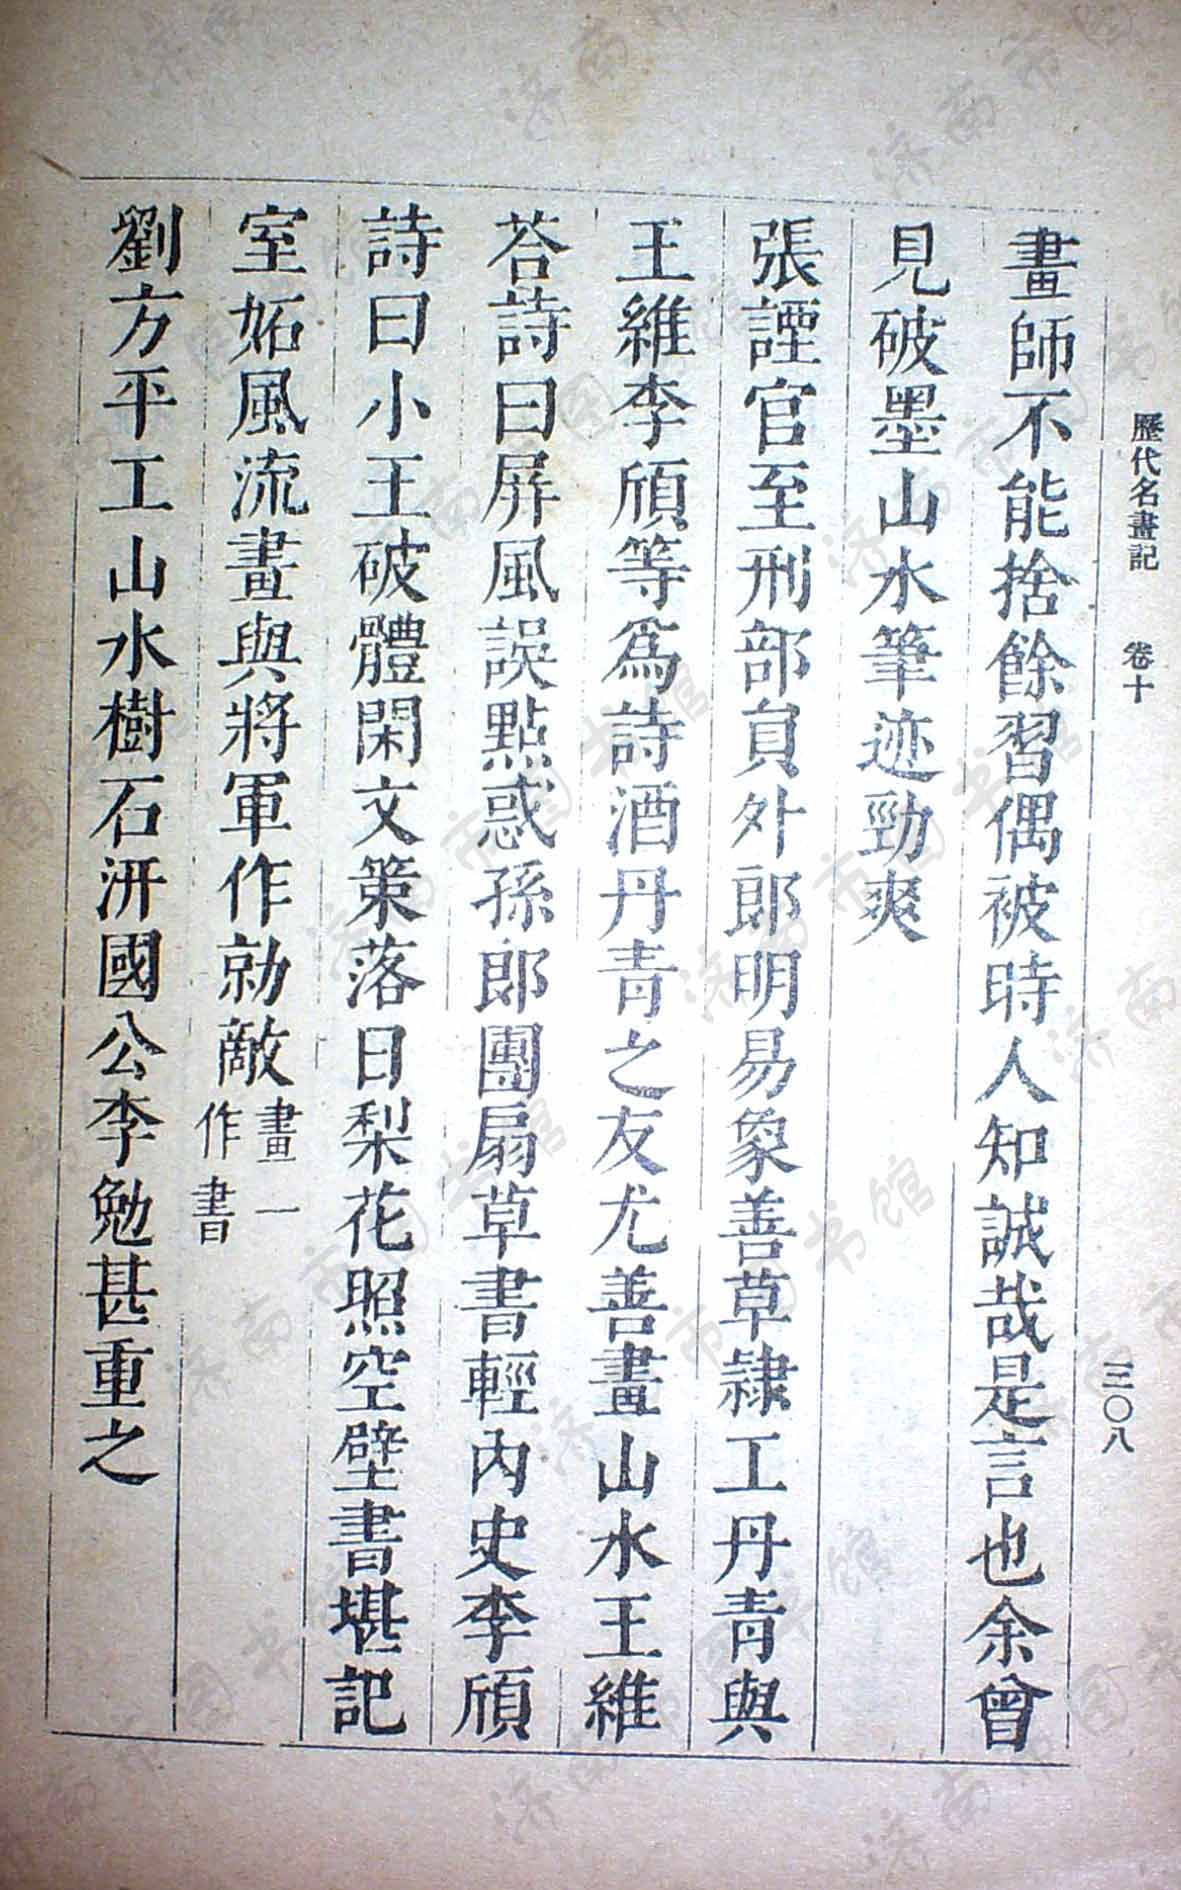 歷代名畫記 卷十 三〇八
畫師不能捨餘習偶被時人知誠哉是言也余曾
見破墨山水筆迹勁爽
張諲官至刑部員外郎明易象善草隷工丹青與
王維李頎等爲詩酒丹青之友尤善畫山水王維
荅詩曰屏風誤點惑孫郎團扇草書輕內史李頎
詩曰小王破體閑文策落日梨花照空壁書堪記
室妬風流畫與將軍作勍敵畫一
作書
劉方平工山水樹石汧國公李勉甚重之
济南市图书馆